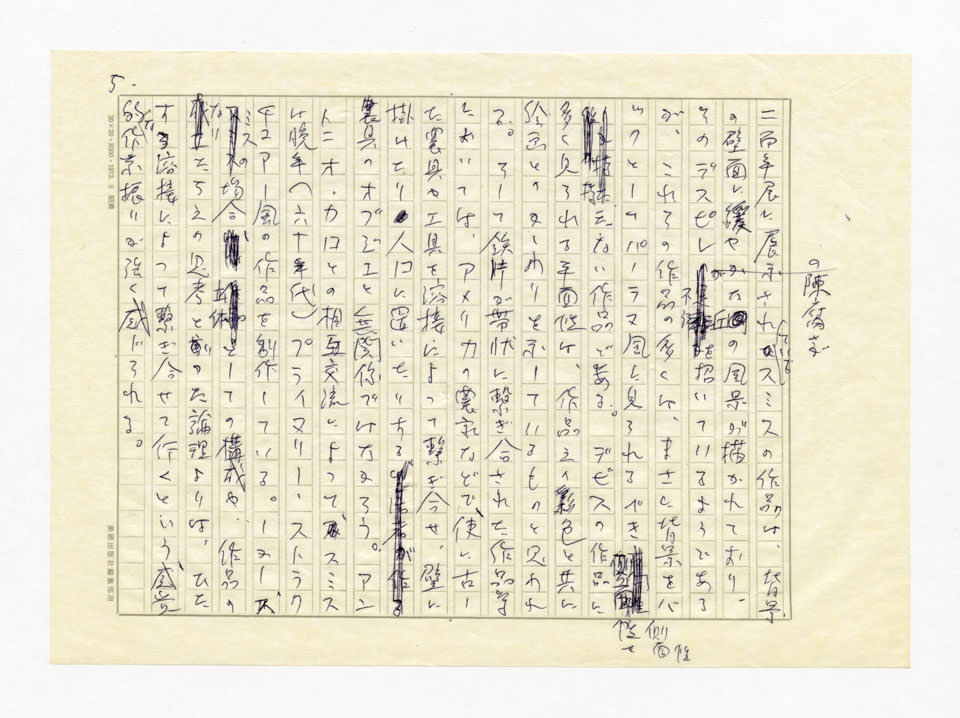 5.
の陳腐さ
二百年展に展示されたスミスの作品は、背景
の壁面に緩やかな丘の風景が描かれており、
そのデスピレ
を招いているようである
が、これらの作品の多くは、まさに背景をバ
ックとしてパーラメ風に見られるべき
側面性
を持たない作品である。デビスの作品に
多く見られる平面性は、作品に彩色と共に
絵画との交わりを示しているものと思われ
る。そして鉄片が帯状に繋ぎ合された作品等
においては、アメリカの農家などで、使い古し
た農具や工具を溶接によって繋ぎ合せ、壁に
掛けたり入口に置いたりする
農具のオブジェと無関係ではなかろう。アン
トニオ・カロとの相互交流によってスミス
は晩年(六十年代)プライマリー・ストラク
チュアー風の作品を創作している。しかし
スミスの場合
としての構成や、作品の
なりたちえの思考と言った論理よりは、ひた
すら溶接によって繋ぎ合せて行くという、感覚
的な作業振りが強く感じられる。
20×20